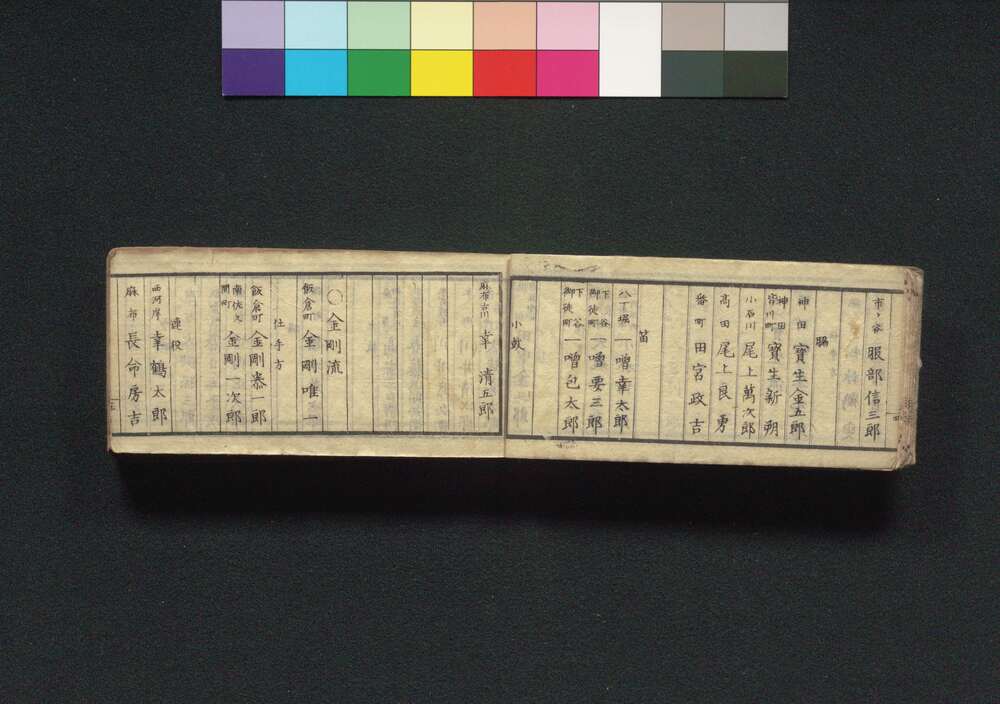 市ヶ谷 服部信三郎
脇
神田 寶生金五郎
神田 宮川町 寶生新朔
小石川 尾上萬次郎
高田 尾上良勇
番町 田宮政吉
笛
八丁堀 一噌幸太郎
下谷 御徒町 一噌要三郎
下谷 御徒町 一噌包太郎
小鼓
麻布古川 幸清五郎
〇金剛流
飯倉町 金剛唯一
仕手方
飯倉町 金剛泰一郎
南佐久間町 金剛一次郎
連役
西河岸 幸鶴太郎
麻布 長命房吉